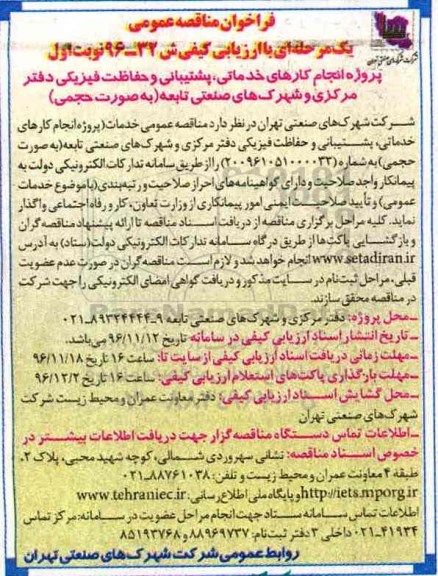 فراخوان مناقصه عمومی
یک مرحله‌ای با ارزیابی کیفی ش ۳۲-۹۶ نوبت اول
شرکت شهرک‌های صنعتی تهران
پروژه انجام کارهای خدماتی، پشتیبانی و حفاظت فیزیکی دفتر
مرکزی و شهرک های صنعتی تابعه (به صورت حجمی)
شرکت شهرک‌های صنعتی تهران در نظر دارد مناقصه عمومی خدمات (پروژه انجام کارهای
خدماتی، پشتیبانی و حفاظت فیزیکی دفتر مرکزی و شهرک‌های صنعتی تابعه (به صورت
حجمی) به شماره (۲۰۰۹۶۱۰۵۱۰۰۰۰۳۳) را از طریق سامانه تدارکات الکترونیکی دولت به
پیمانکار واجد صلاحیت و دارای گواهینامه‌های احراز صلاحیت و رتبه‌بندی (با موضوع خدمات
عمومی) و تأیید صلاحیت ایمنی امور پیمانکاری از وزارت تعاون، کار و رفاه اجتماعی واگذار
نماید. کلیه مراحل برگزاری مناقصه از دریافت اسناد مناقصه تا ارائه پیشنهاد مناقصه گران
و بازگشایی پاکت‌ها از طریق درگاه سامانه تدارکات الکترونیکی دولت (ستاد) به آدرس
www.setadiran.ir انجام خواهد شد و لازم است مناقصه گران در صورت عدم عضویت
قبلی، مراحل ثبت‌نام در سایت مذکور و دریافت گواهی امضای الکترونیکی را جهت شرکت
در مناقصه محقق سازند.
ـ محل پروژه: دفتر مرکزی و شهرک‌های صنعتی تابعه ۹-۸۹۳۲۴۴۴۴-۰۲۱
ـ تاریخ انتشار اسناد ارزیابی کیفی در سامانه تاریخ ۹۶/۱۱/۱۲ می‌باشد.
ـ مهلت زمانی دریافت اسناد ارزیابی کیفی از سایت تا: ساعت ۱۶ تاریخ ۹۶/۱۱/۱۸
ـ مهلت بارگذاری پاکت‌های استعلام ارزیابی کیفی: ساعت ۱۶ تاریخ ۹۶/۱۲/۲
ـ محل گشایش اسناد ارزیابی کیفی: دفتر معاونت عمران و محیط زیست شرکت
شهرک‌های صنعتی تهران
ـ اطلاعات تماس دستگاه مناقصه گزار جهت دریافت اطلاعات بیشتر در
خصوص اسناد مناقصه: نشانی سهروردی شمالی، کوچه شهید محبی، پلاک ۲،
طبقه ۴ معاونت عمران و محیط زیست و تلفن: ۸۸۷۶۱۰۳۸-۰۲۱
http://iets.mporg.ir و پایگاه ملی اطلاع رسانی: www.tehraniec.ir
اطلاعات تماس سامانه ستاد جهت انجام مراحل عضویت در سامانه: مرکز تماس
۴۱۹۳۴-۰۲۱ داخلی ۳ دفتر ثبت‌نام: ۸۸۹۶۹۷۳۷ و ۸۵۱۹۳۷۶۸
روابط عمومی شرکت شهرک‌های صنعتی تهران